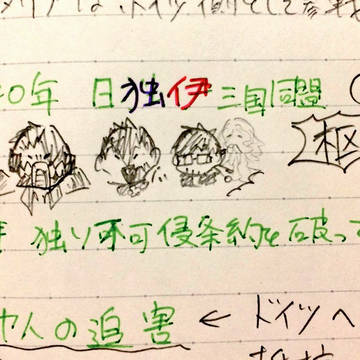 タリアは、ドイツ側として参戦
0年 日独伊三国同盟 (
枢
独ソ不可侵条約を破って
ヤ人の迫害 ← ドイツへ